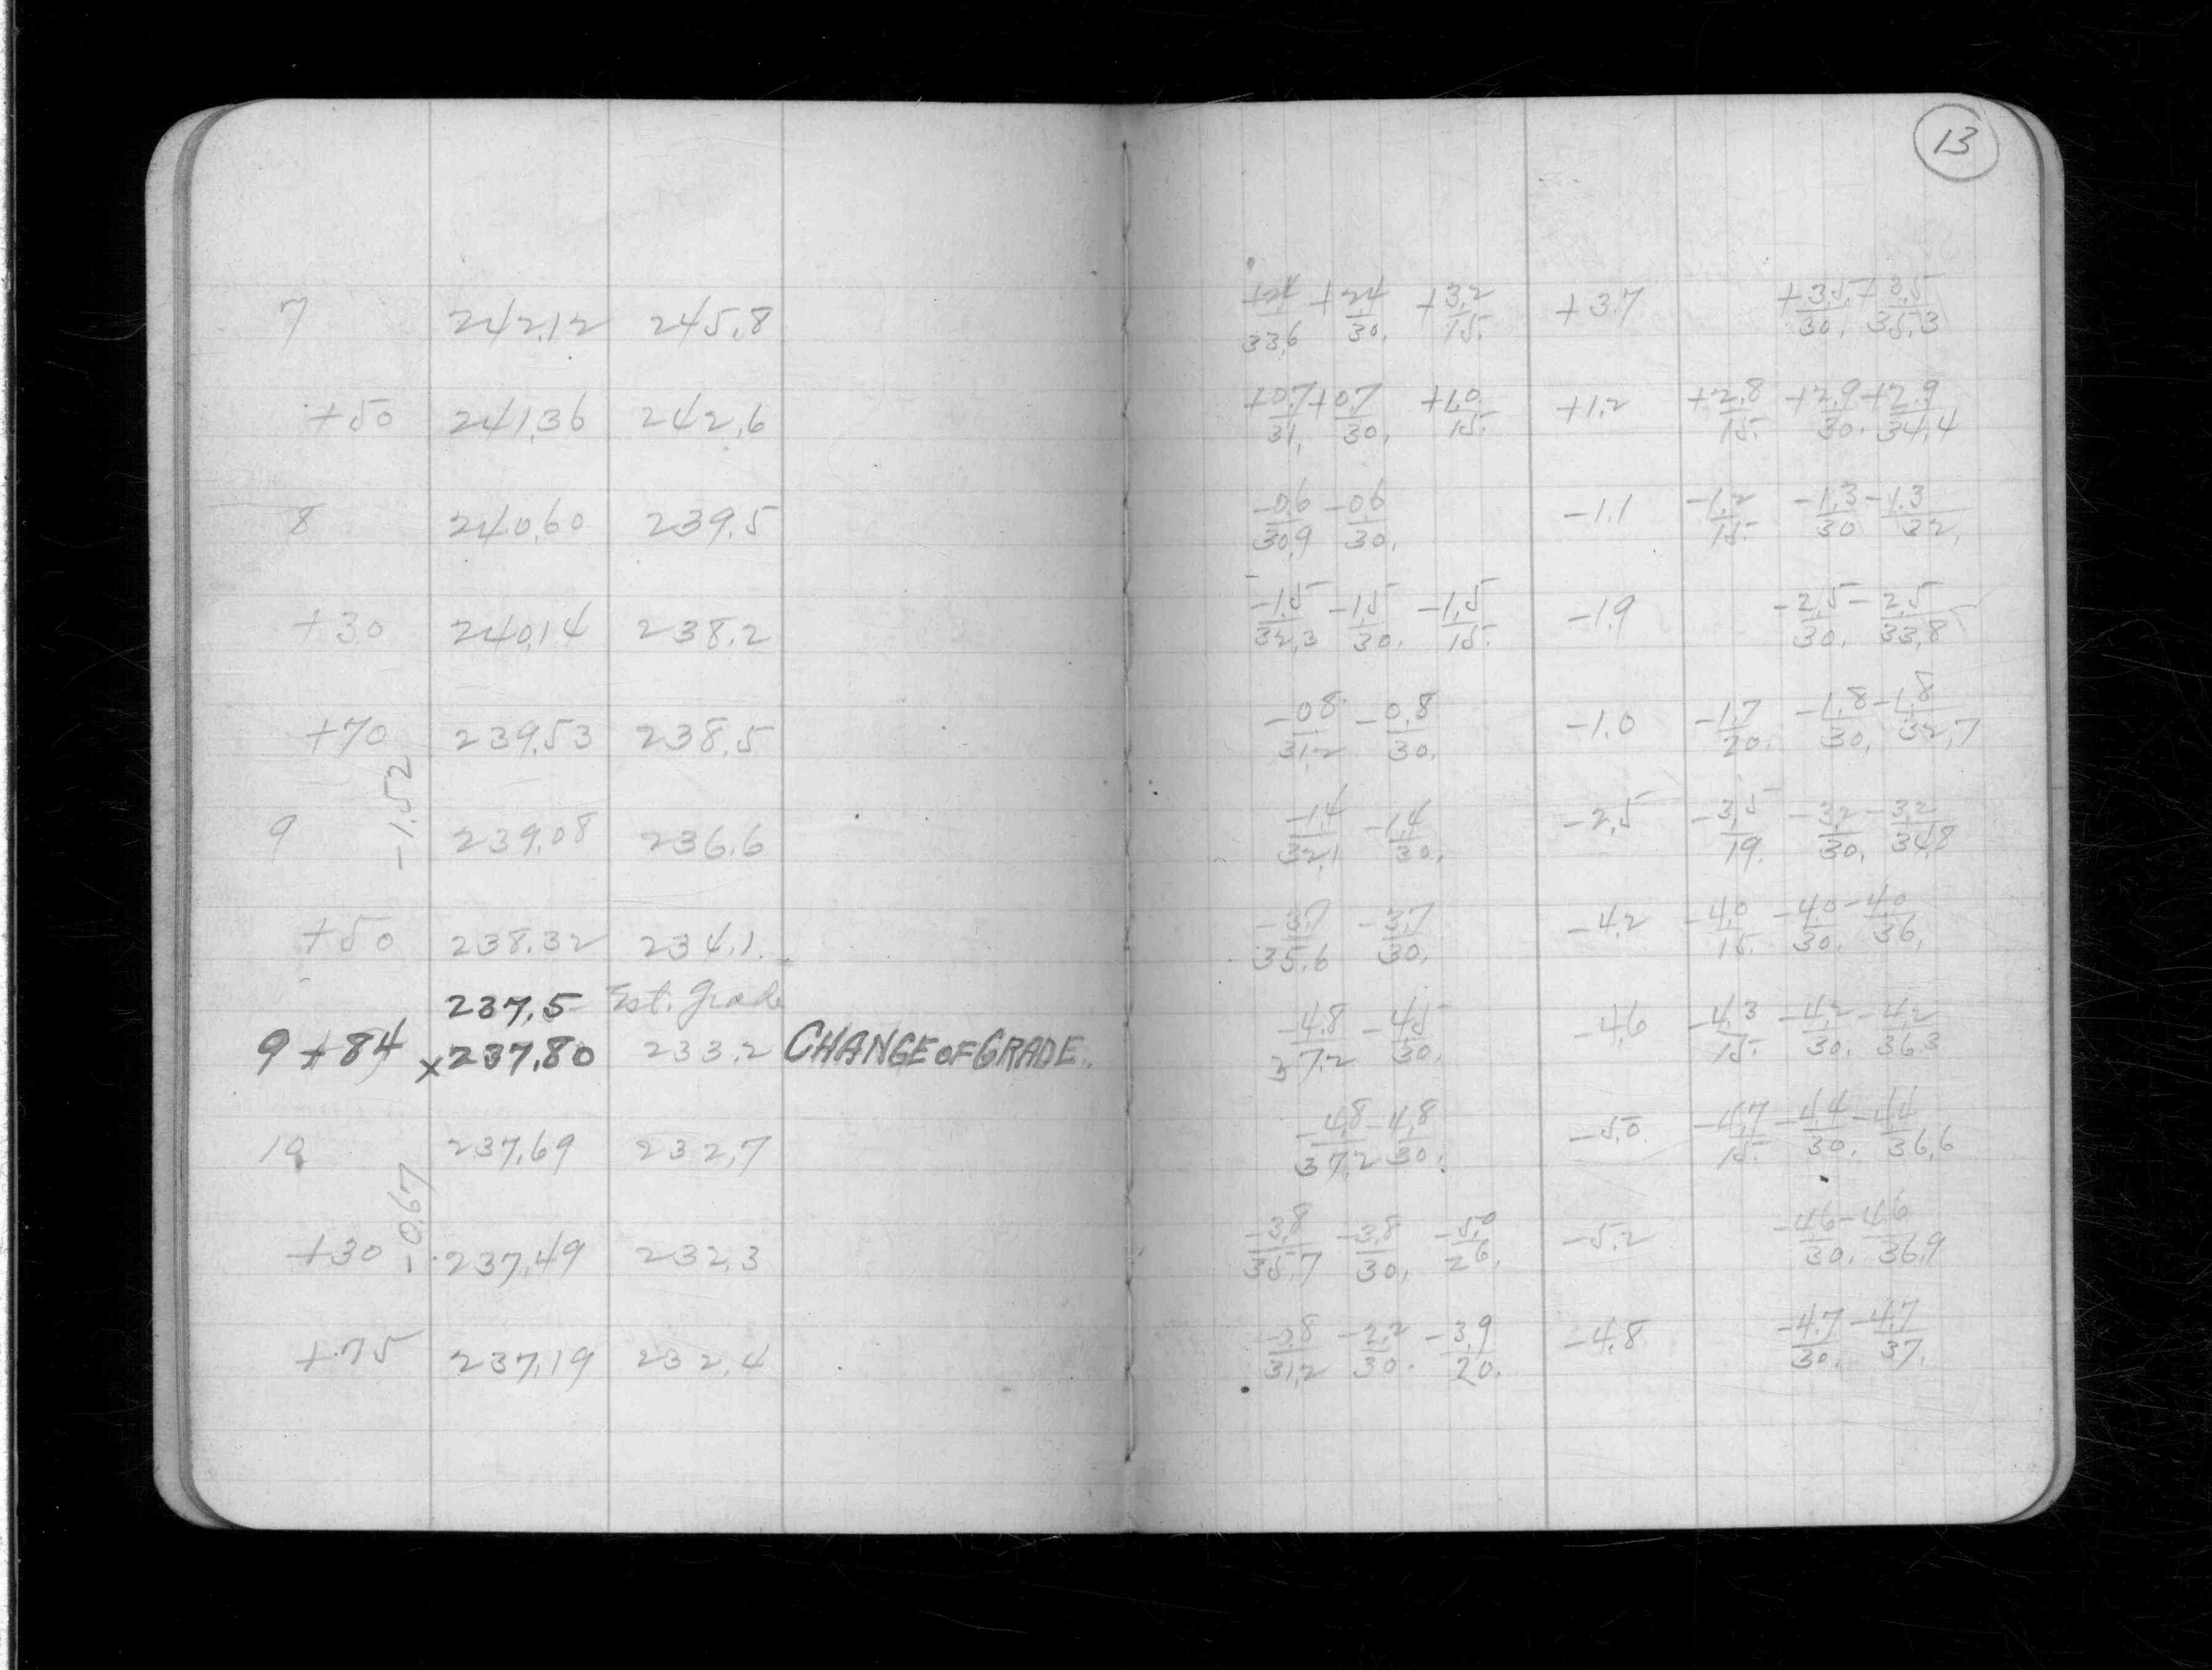 13
7 242.12 245.8 +2.4/33.6 +2.4/30. +3.2/15. +3.7 +3.5/30. +3.5/35.3
+50 241.36 242.6 +0.7/31. +0.7/30. +1.0/15. +1.2 +2.8/15. +2.9/30. +2.9/34.4
8 240.60 239.5 -0.6/30.9 -0.6/30. -1.1 -1.2/15. -1.3/30 -1.3/32.
+30 240.14 238.2 -1.5/32.3 -1.5/30. -1.5/15. -1.9 -2.5/30. -2.5/33.8
+70 239.53 238.5 -0.8/31.2 -0.8/30. -1.0 -1.7/20. -1.8/30. -1.8/32.7
-1.52
9 239.08 236.6 -1.4/32.1 -1.4/30. -2.5 -3.5/19. -3.2/30. -3.2/34.8
+50 238.32 234.1 -3.7/35.6 -3.7/30. -4.2 -4.0/15. -4.0/30. -4.0/36.
237.5 Est. Grade
9+84 x237.80 233.2 CHANGE OF GRADE. -4.8/37.2 -4.5/30. -4.6 -4.3/15. -4.2/30. -4.2/36.3
10 237.69 232.7 -4.8/37.2 -4.8/30. -5.0 -4.7/15. -4.4/30. -4.4/36.6
-0.67
+30 237.49 232.3 -3.8/35.7 -3.8/30. -5.0/26. -5.2 -4.6/30. -4.6/36.9
+75 237.19 232.4 -0.8/31.2 -2.2/30. -3.9/20. -4.8 -4.7/30. -4.7/37.